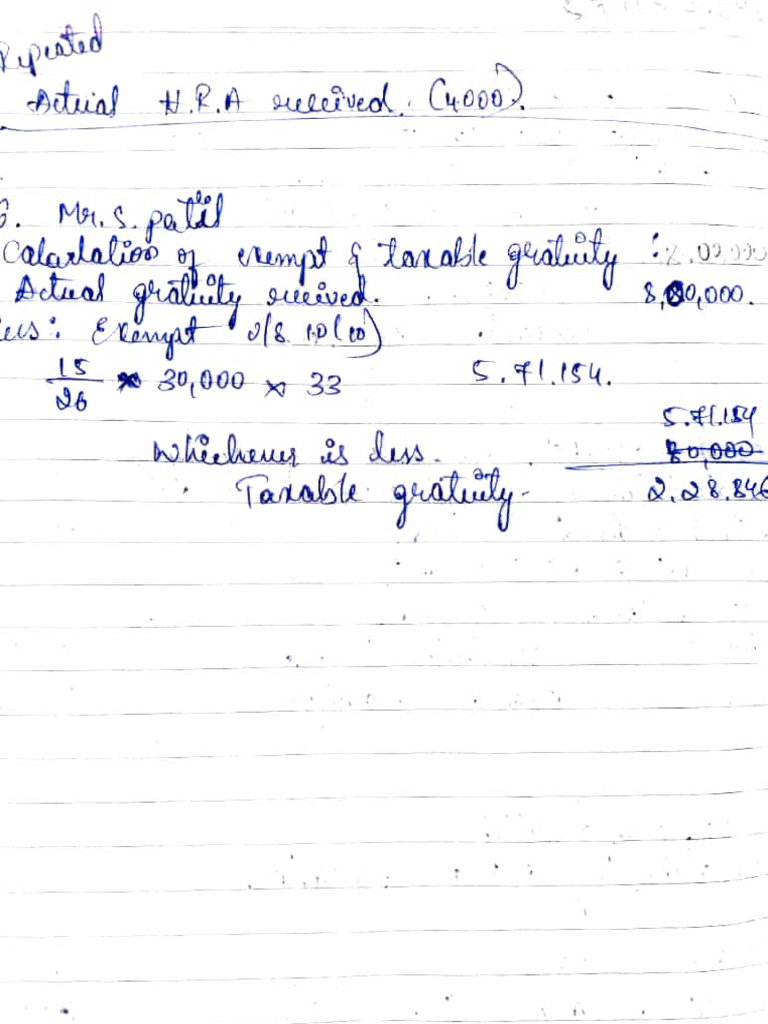 Repeated
Actual H.R.A received. (4000).
3. Mr. S. patil
Calculation of exempt & taxable gratuity :
Actual gratuity received. 8,00,000.
Less: Exempt U/S 10(10)
15/26 × 30,000 × 33 5.71.154.
5.71.154
Whichever is less. 80,000
Taxable gratuity- 2.28.846